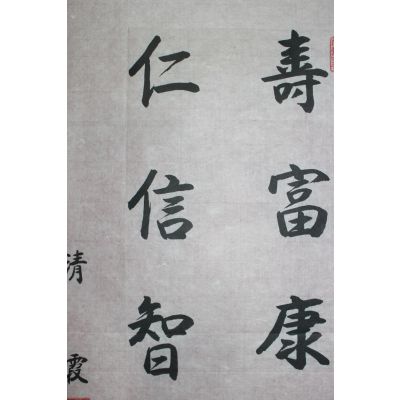 壽富康
仁信智
清霞